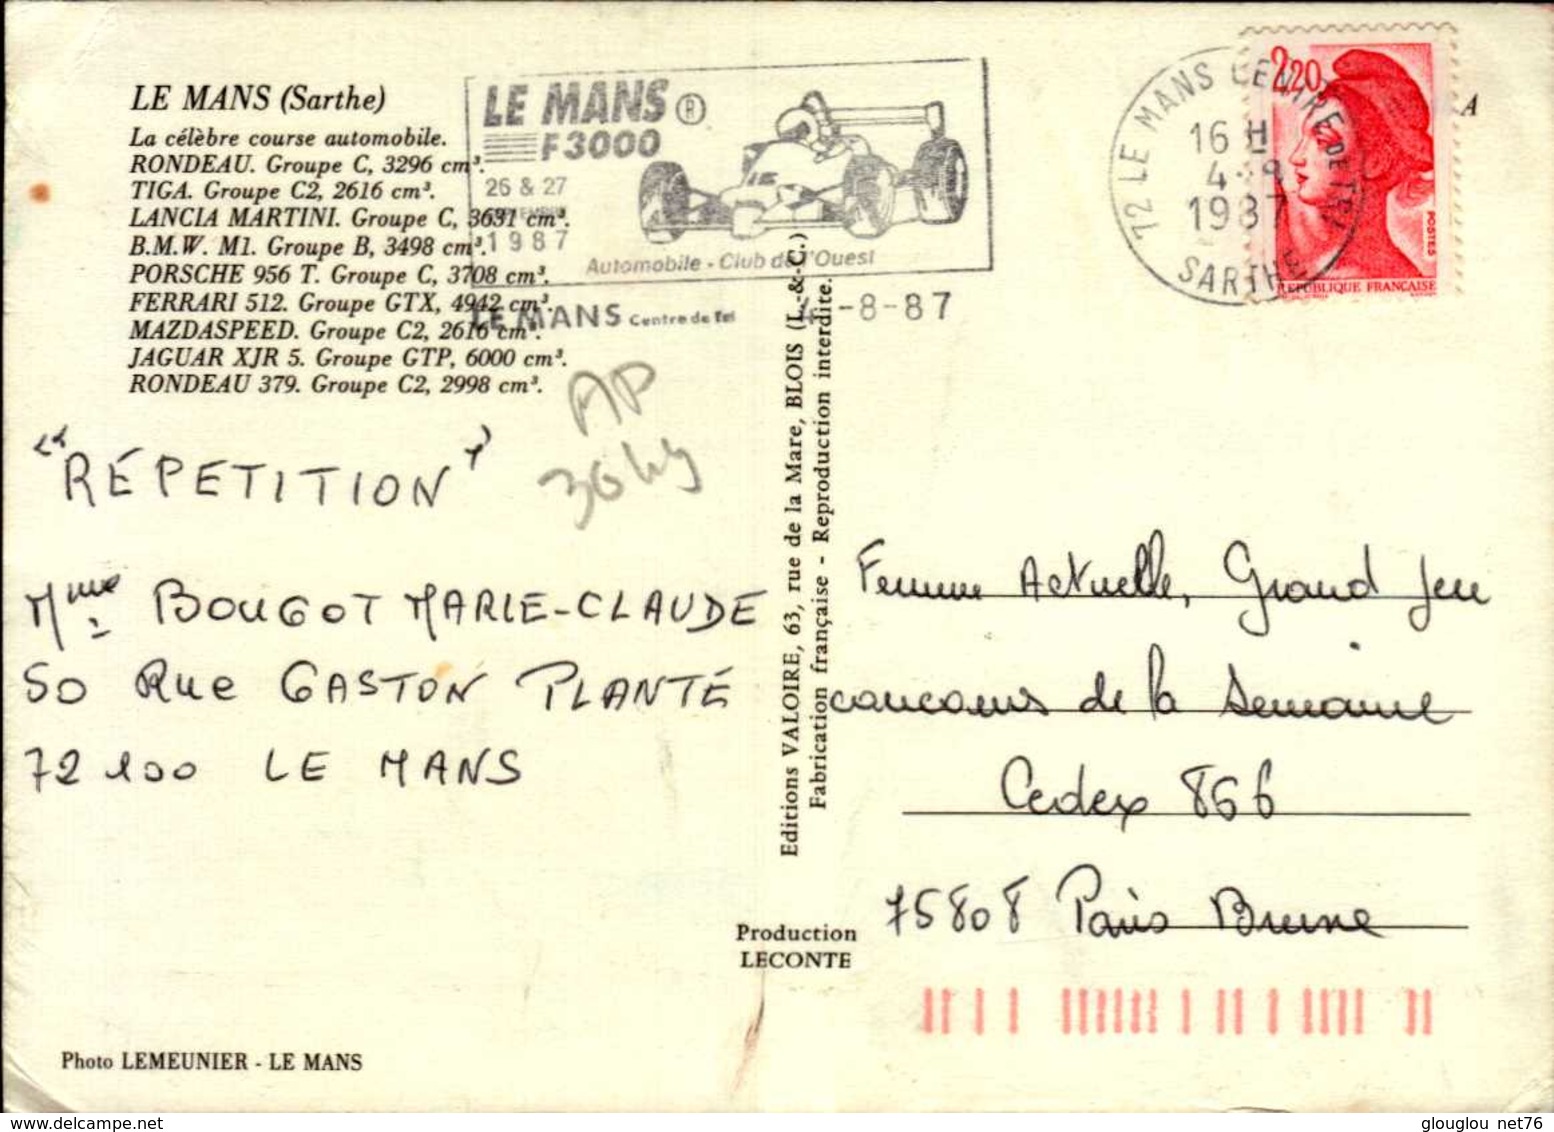 LE MANS (Sarthe)
La célèbre course automobile.
RONDEAU. Groupe C, 3296 cm³.
TIGA. Groupe C2, 2616 cm³.
LANCIA MARTINI. Groupe C, 3631 cm³.
B.M.W. M1. Groupe B, 3498 cm³.
PORSCHE 956 T. Groupe C, 3708 cm³.
FERRARI 512. Groupe GTX, 4942 cm³.
MAZDASPEED. Groupe C2, 2616 cm³.
JAGUAR XJR 5. Groupe GTP, 6000 cm³.
RONDEAU 379. Groupe C2, 2998 cm³.
LE MANS ®
F3000
26 & 27
1987
Automobile - Club de l'Ouest
LE MANS Centre de Tri
4-8-87
72 LE MANS CENTRE DE TRI
16 H
4-8
1987
SARTHE
2,20
POSTES
REPUBLIQUE FRANÇAISE
A
AP
"RÉPETITION"
Mme BOUGOT MARIE-CLAUDE
50 Rue GASTON PLANTÉ
72100 LE MANS
Editions VALOIRE, 63, rue de la Mare, BLOIS (L.-&-C.)
Fabrication française - Reproduction interdite.
Femme Actuelle, Grand Jeu
concours de la Semaine
Cedex 866
75808 Paris Brune
Production
LECONTE
Photo LEMEUNIER - LE MANS
glouglou net76